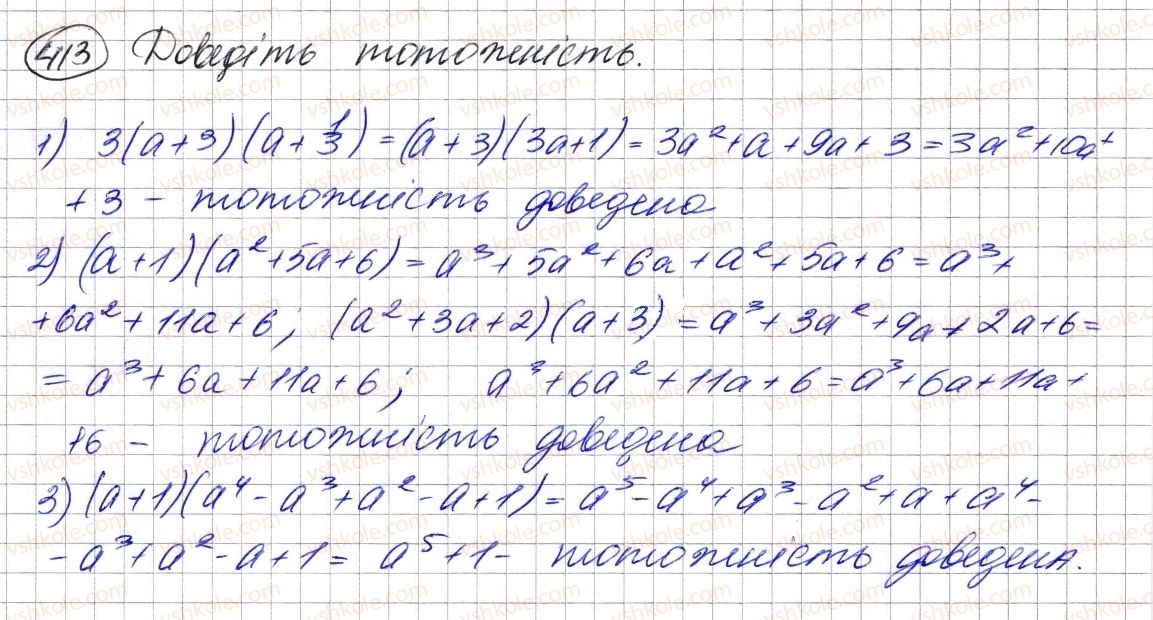 413 Доведіть тотожність.
1) 3(a+3)(a+1/3) = (a+3)(3a+1) = 3a²+a+9a+3 = 3a²+10a+
+3 – тотожність доведена
2) (a+1)(a²+5a+6) = a³+5a²+6a+a²+5a+6 = a³+
+6a²+11a+6; (a²+3a+2)(a+3) = a³+3a²+9a+2a+6 =
= a³+6a+11a+6; a³+6a²+11a+6 = a³+6a+11a+
+6 – тотожність доведена
3) (a+1)(a⁴-a³+a²-a+1) = a⁵-a⁴+a³-a²+a+a⁴-
-a³+a²-a+1 = a⁵+1 – тотожність доведена.